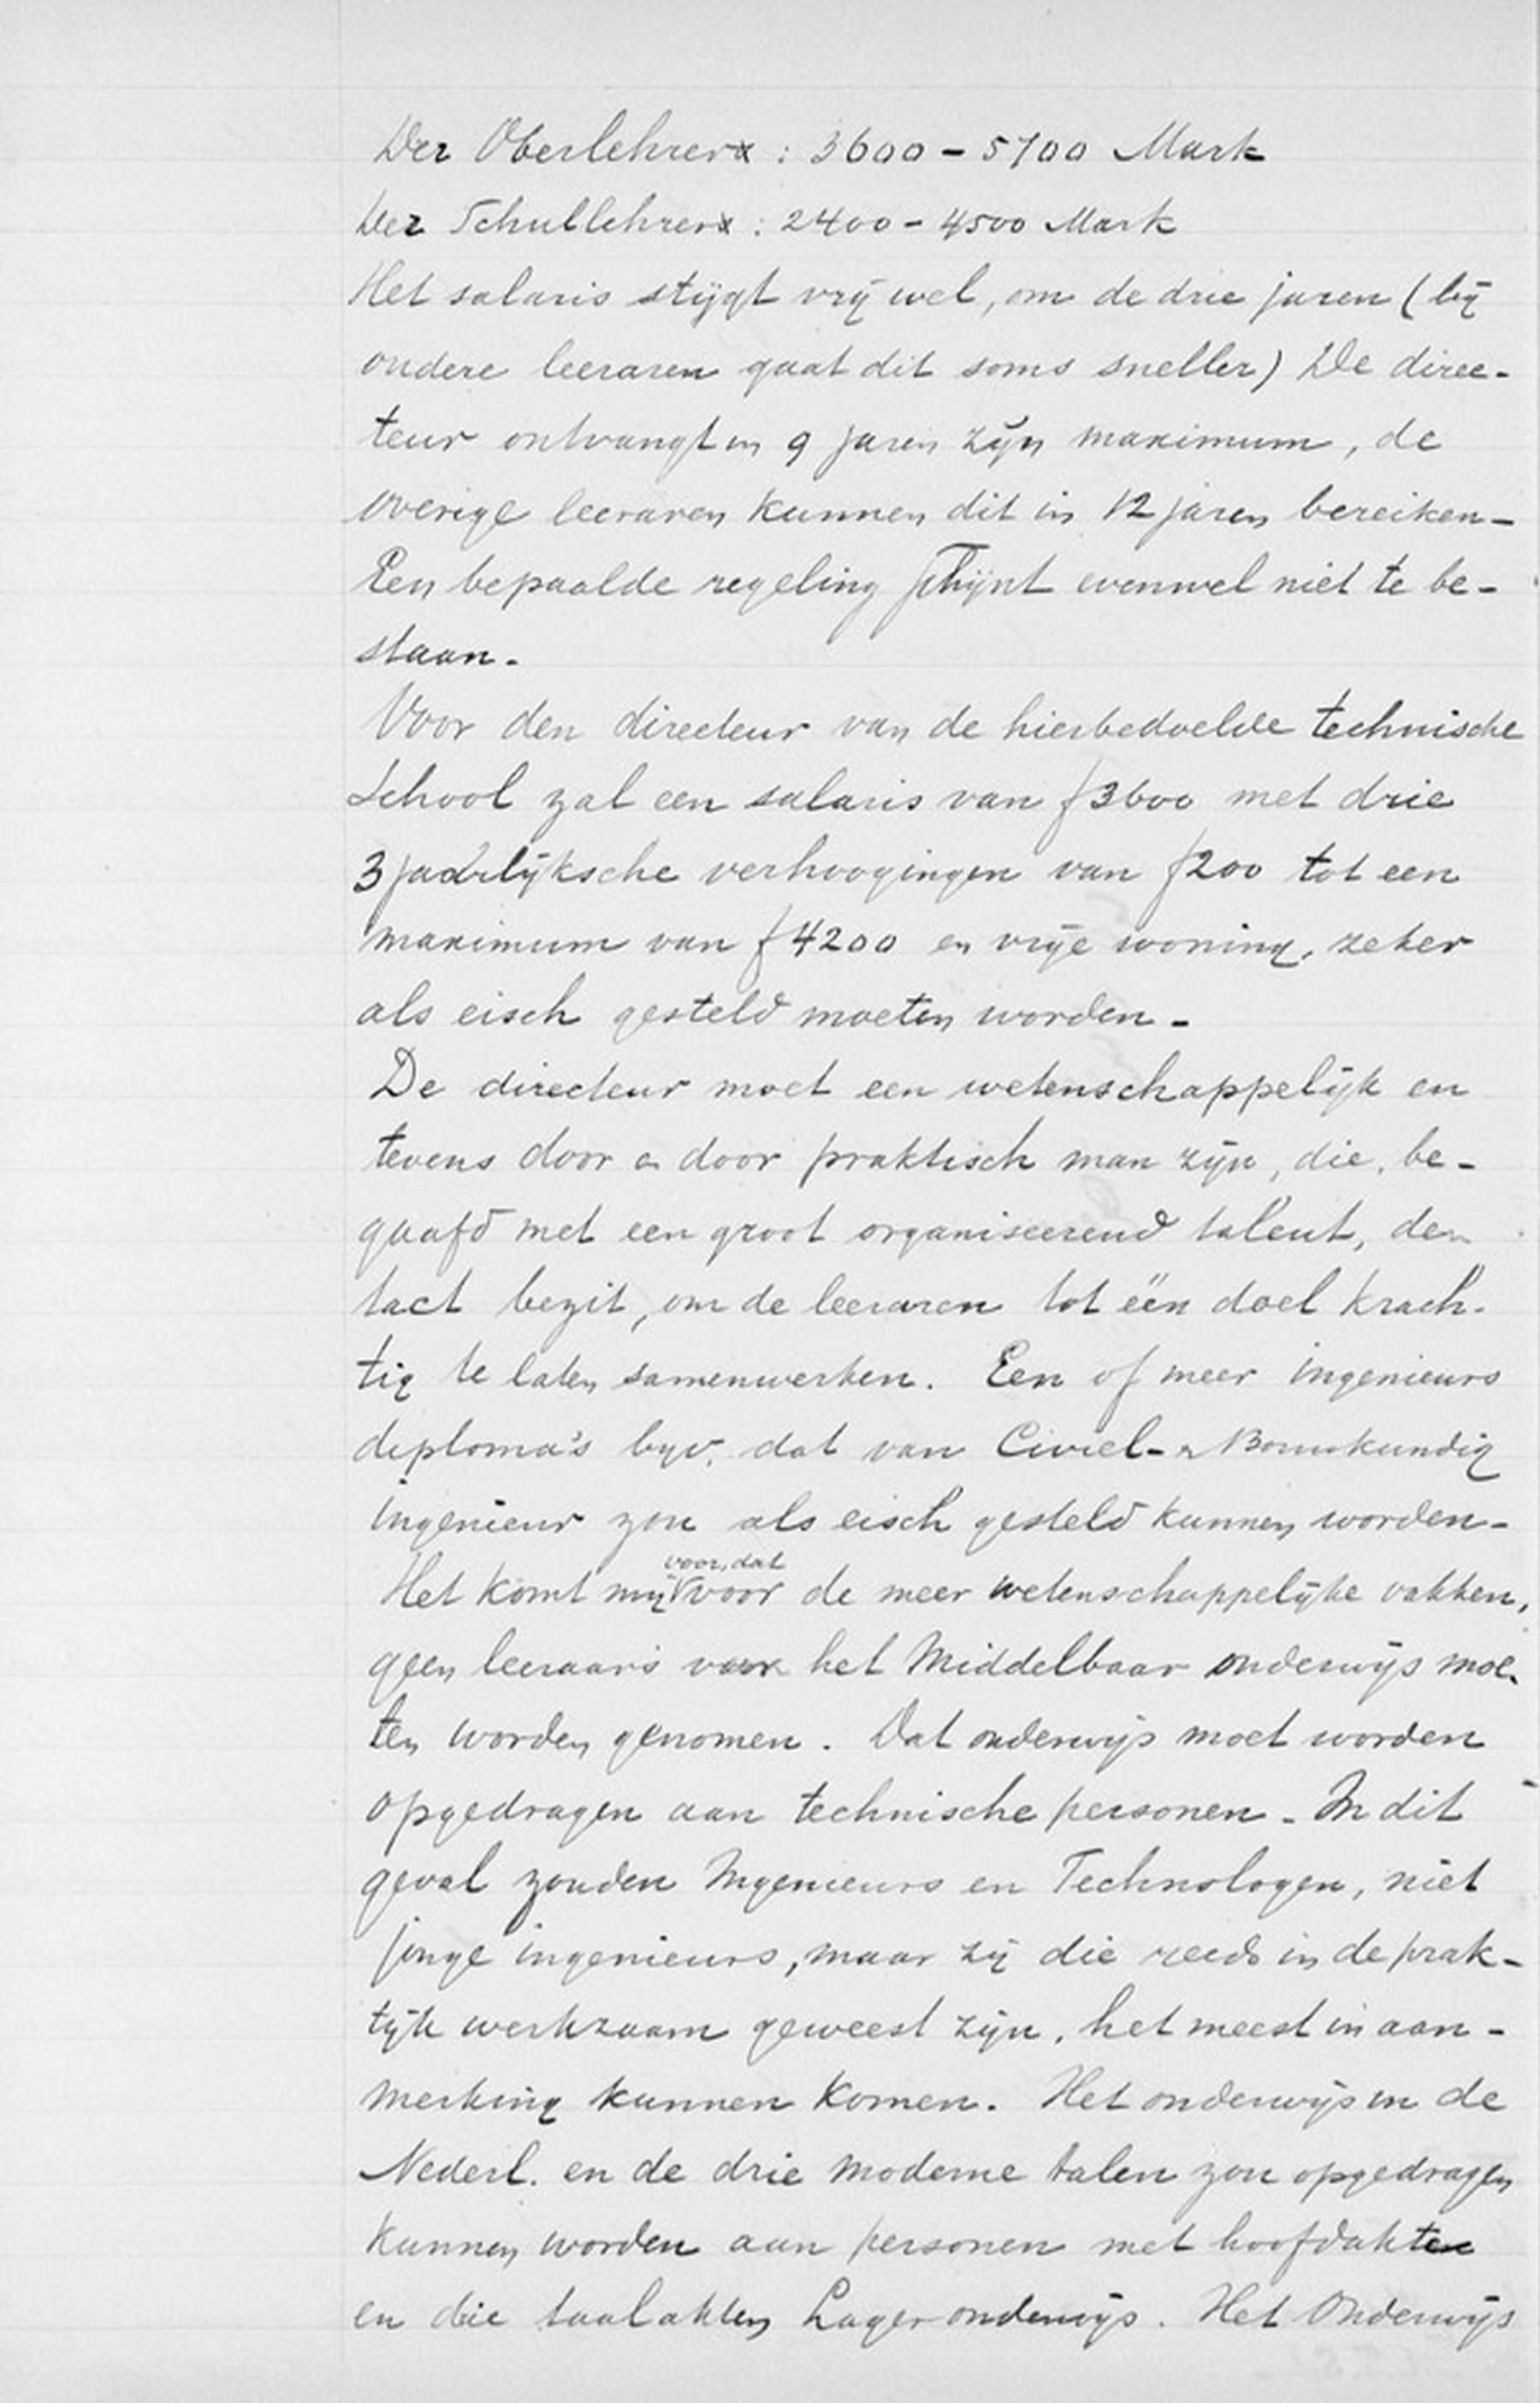 Der Oberlehrer : 3600 - 5700 Mark
Der Schullehrer : 2400 - 4500 Mark
Het salaris stijgt vrij wel, om de drie jaren (bij
oudere leeraren gaat dit soms sneller) De direc-
teur ontvangt in 9 jaren zijn maximum, de
overige leeraren kunnen dit in 12 jaren bereiken -
Een bepaalde regeling schijnt evenwel niet te be-
staan.
Voor den directeur van de hierbedoelde technische
school zal een salaris van f 3600 met drie
3 jaarlijksche verhoogingen van f 200 tot een
maximum van f 4200 en vrije woning, zeker
als eisch gesteld moeten worden -
De directeur moet een wetenschappelijk en
tevens door en door praktisch man zijn, die, be-
gaafd met een groot organiseerend talent, den
tact bezit, om de leeraren tot één doel krach-
tig te laten samenwerken. Een of meer ingenieurs
diploma's bijv. dat van Civiel- en Bouwkundig
ingenieur zou als eisch gesteld kunnen worden -
voor, dat
Het komt mij voor de meer wetenschappelijke vakken,
geen leeraars voor het Middelbaar onderwijs moe-
ten worden genomen. Dat onderwijs moet worden
opgedragen aan technische personen - In dit
geval zouden Ingenieurs en Technologen, niet
jonge ingenieurs, maar zij die reeds in de prak-
tijk werkzaam geweest zijn, het meest in aan-
merking kunnen komen. Het onderwijs in de
Nederl. en de drie moderne talen zou opgedragen
kunnen worden aan personen met hoofdakten
en die taalakten Lager onderwijs. Het Onderwijs